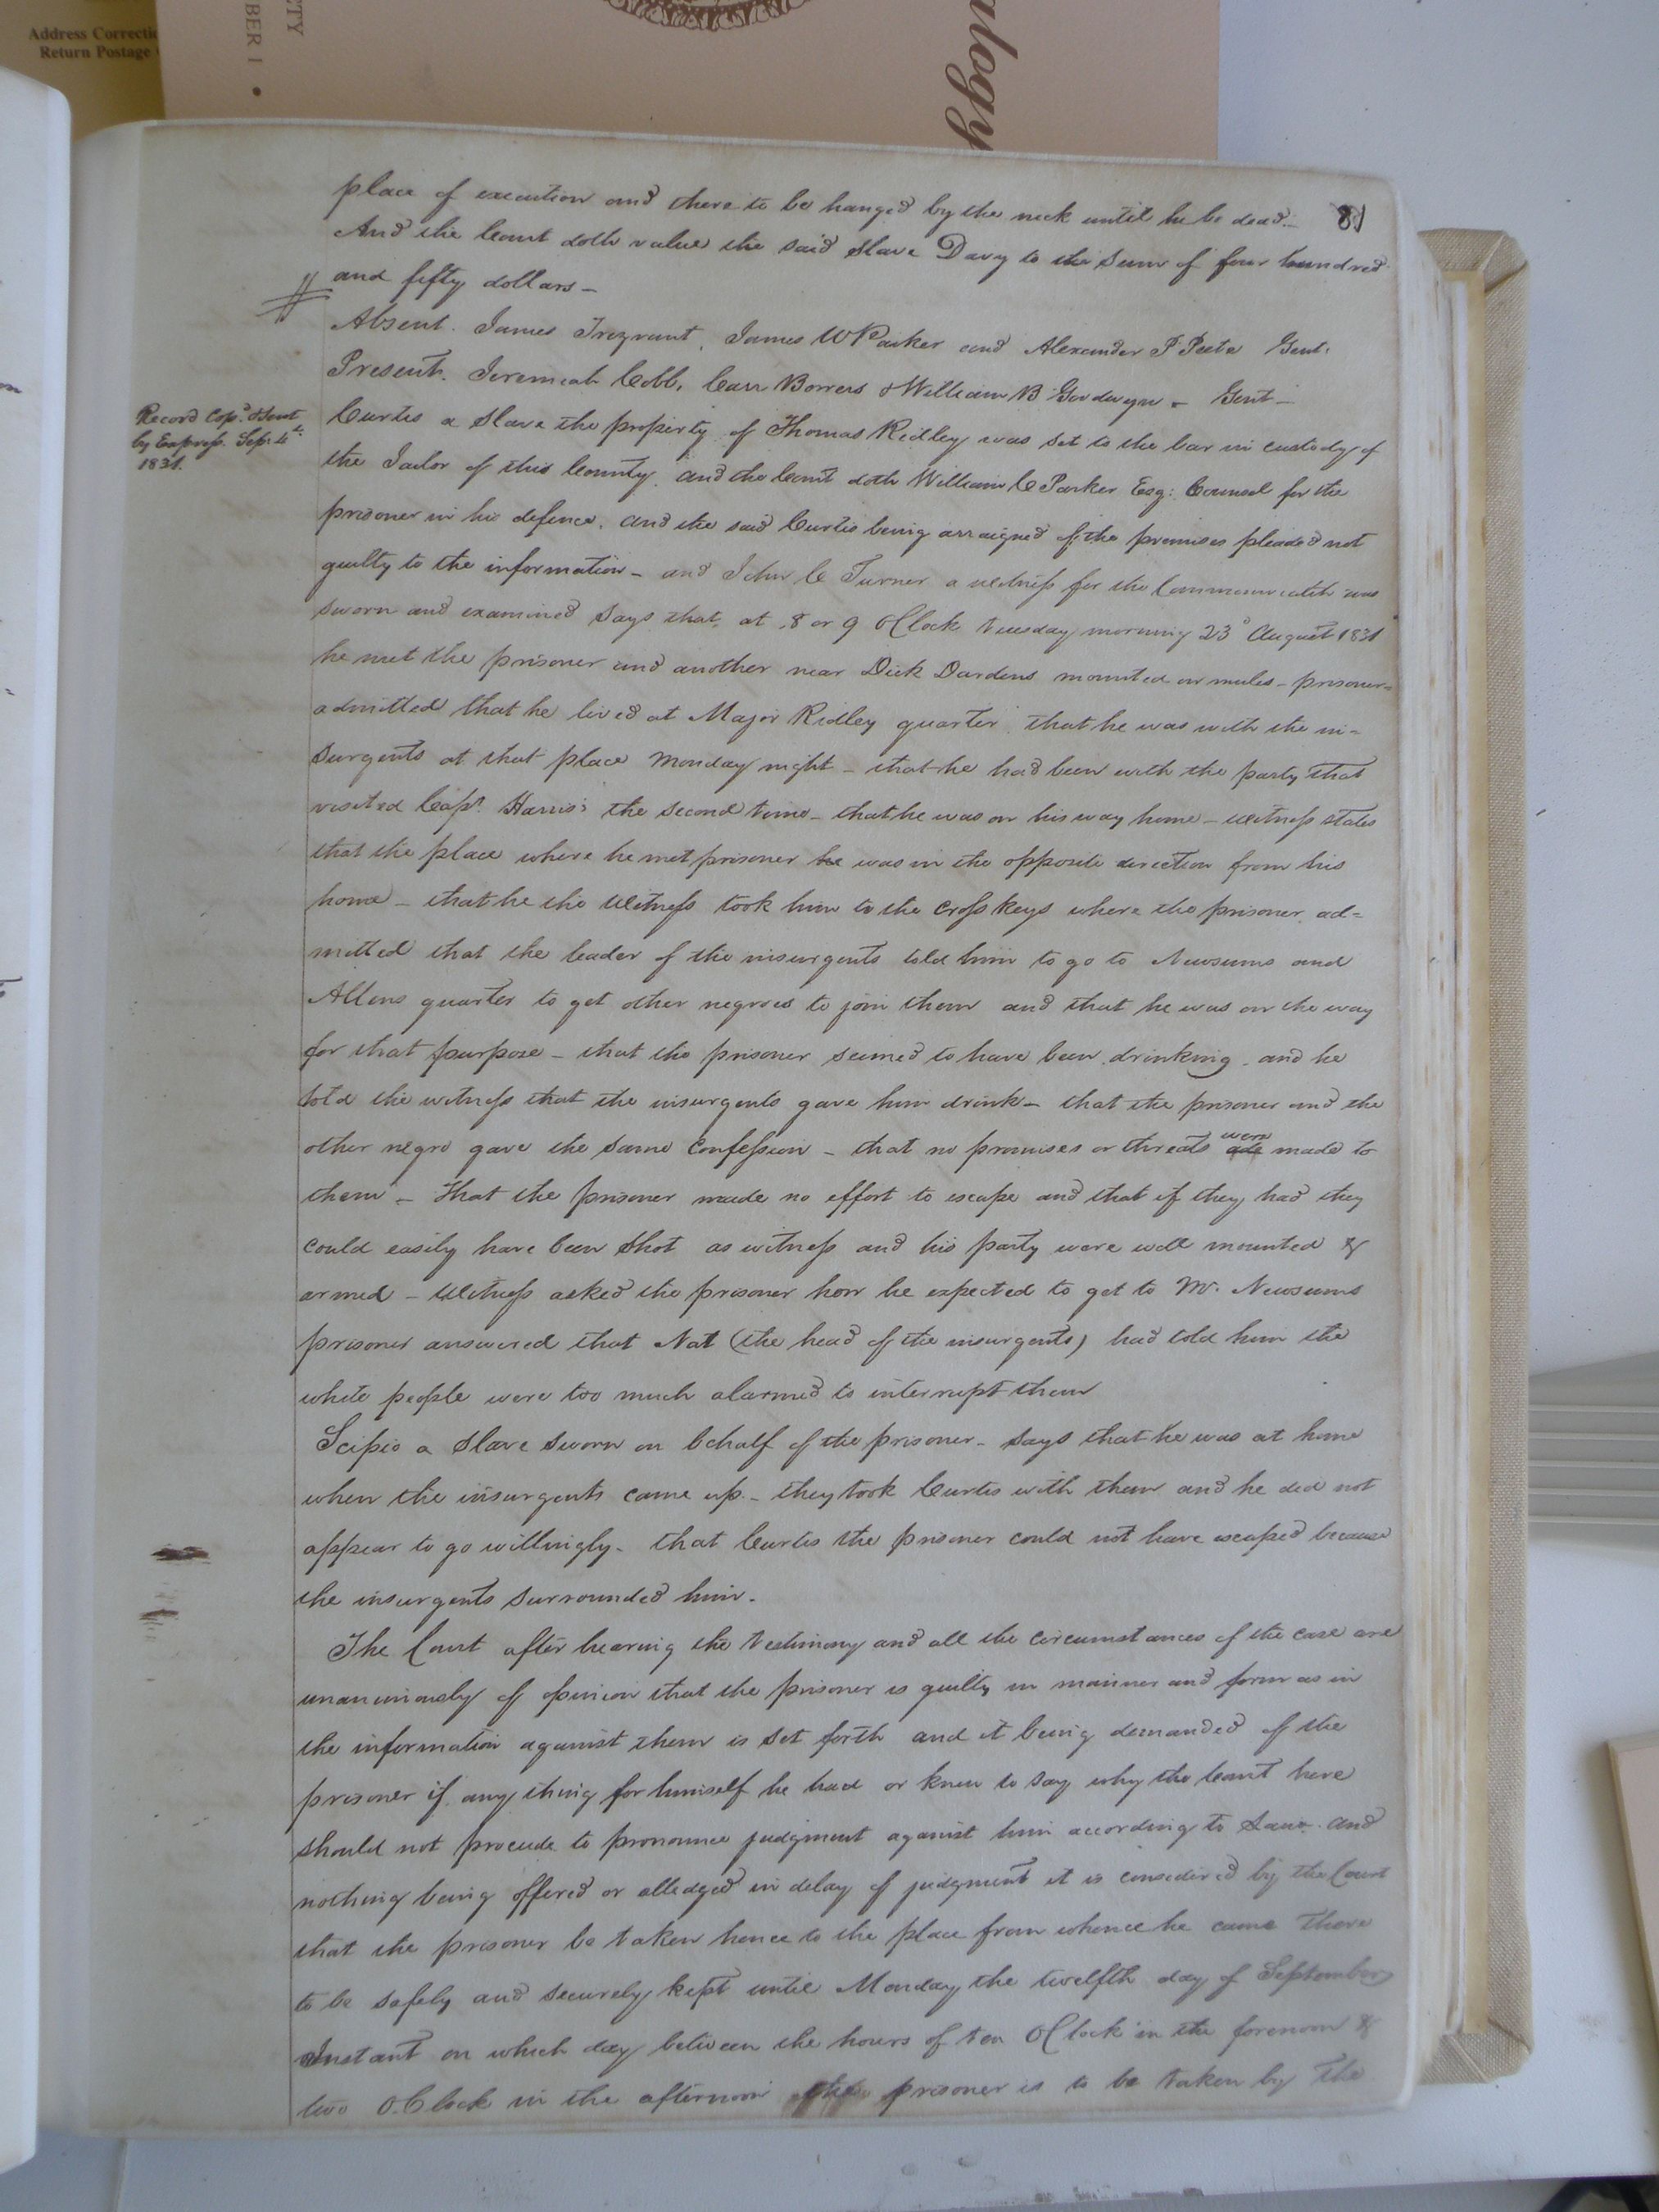 Address Correcti
Return Postage
BER 1 •
ETY
ulogy
81
place of execution and there to be hanged by the neck until he be dead.-
And the Court doth value the said slave Davy to the sum of four hundred
and fifty dollars -
Absent. James Trezvant, James W Parker and Alexander P Peete Gent.
Present. Jeremiah Cobb, Carr Bowers & William B Goodwyn - Gent -
Record Cop.d & sent
by Express. Sep. 4th
1831.
Curtis a slave the property of Thomas Ridley was set to the bar in custody of
the Jailor of this County, and the Court doth William C Parker Esq: Counsel for the
prisoner in his defence, and the said Curtis being arraigned of the premises pleaded not
guilty to the information - and John C Turner a witness for the Commonwealth was
sworn and examined says that, at 8 or 9 oClock tuesday morning 23d August 1831
he met the prisoner and another near Dick Dardens mounted on mules - prisoner
admitted that he lived at Major Ridley quarter, that he was with the in=
surgents at that place monday night - that he had been with the party that
visited Capt. Harris's the second time - that he was on his way home - witness states
that the place where he met prisoner he was in the opposite direction from his
home - that he the Witness took him to the Cross Keys where the prisoner ad=
mitted that the leader of the insurgents told him to go to Newsums and
Allens quarter to get other negroes to join them and that he was on the way
for that purpose - that the prisoner seemed to have been drinking - and he
told the witness that the insurgents gave him drink - that the prisoner and the
other negro gave the same confession - that no promises or threats were made to
them - that the prisoner made no effort to escape and that if they had they
could easily have been shot as witness and his party were well mounted &
armed - Witness asked the prisoner how he expected to get to Mr. Newsums
prisoner answered that Nat (the head of the insurgents) had told him the
white people were too much alarmed to interrupt them
Scipio a slave sworn on behalf of the prisoner - says that he was at home
when the insurgents came up - they took Curtis with them and he did not
appear to go willingly - that Curtis the prisoner could not have escaped because
the insurgents surrounded him.
The Court after hearing the testimony and all the circumstances of the case are
unanimously of opinion that the prisoner is guilty in manner and form as in
the information against them is set forth and it being demanded of the
prisoner if any thing for himself he had or knew to say why the Court here
should not procede to pronounce judgment against him according to Law. and
nothing being offered or alledged in delay of judgment it is considered by the Court
that the prisoner be taken hence to the place from whence he came there
to be safely and securely kept until Monday the twelfth day of September
Instant on which day between the hours of ten OClock in the forenoon &
two O.Clock in the afternoon the prisoner is to be taken by the